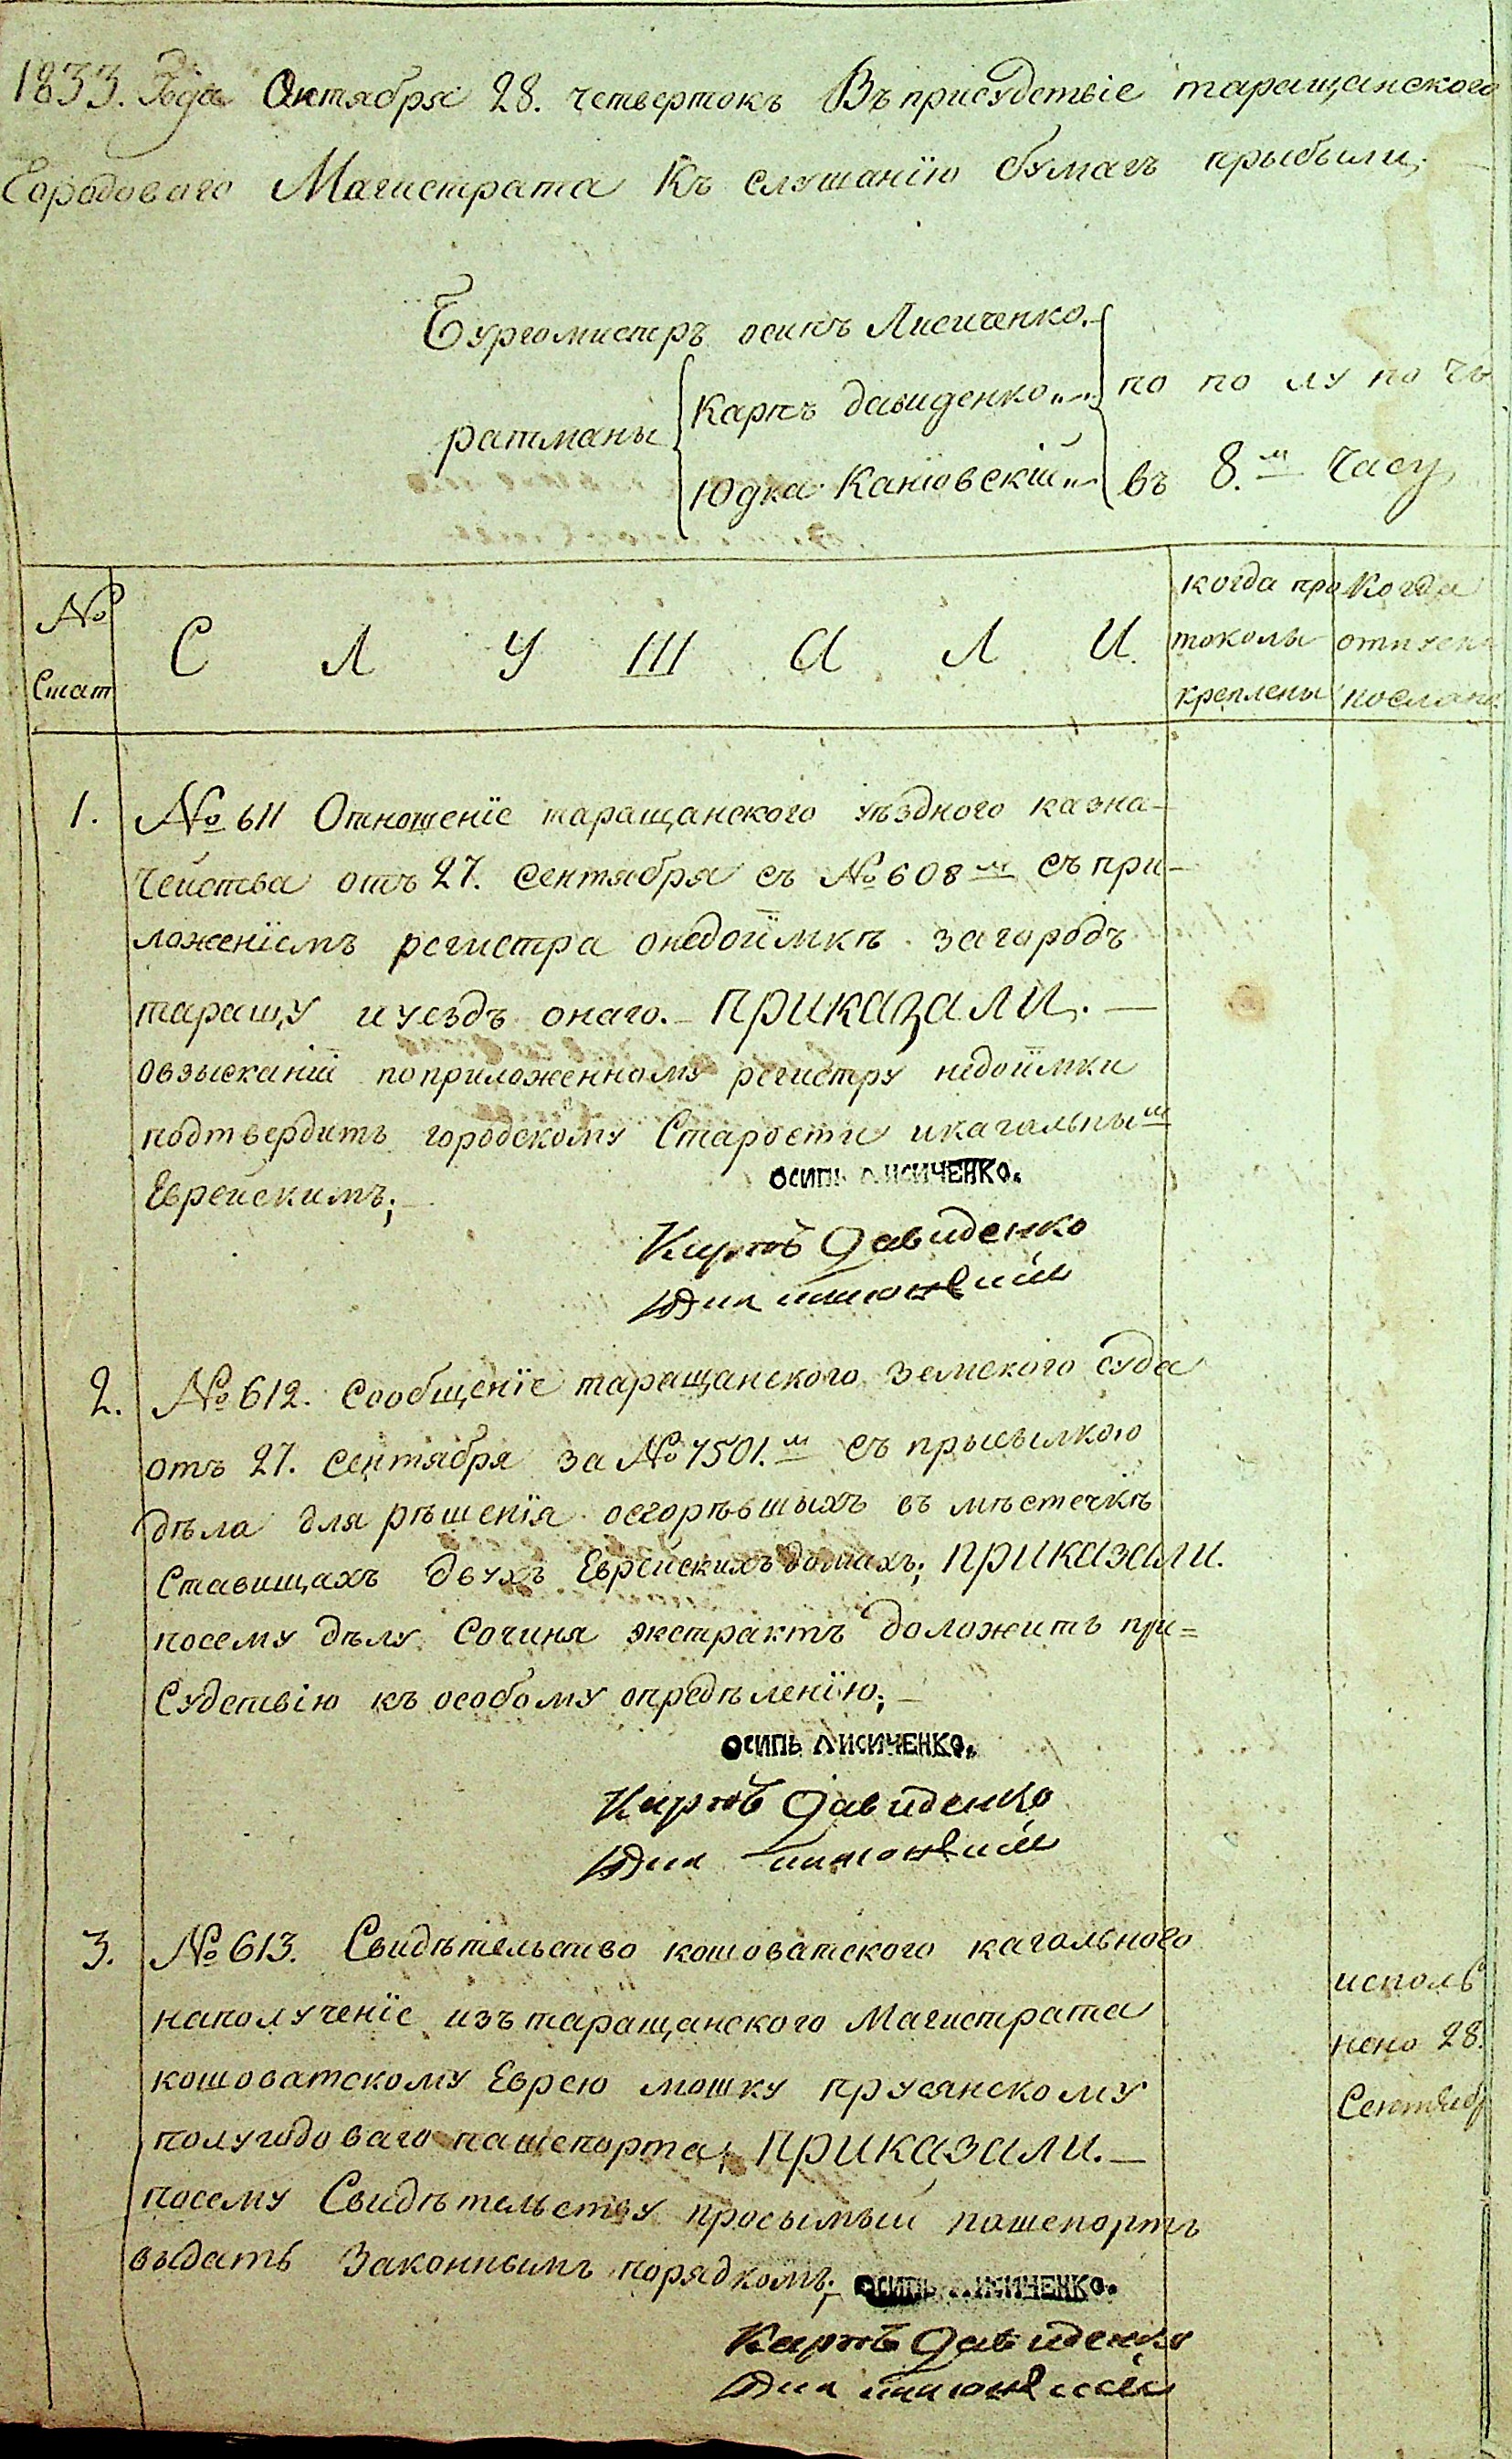 1833. Года Октября 28. четвертокъ Въ присудствіе таращанского
Городоваго Магистрата Къ слушанїю бумагъ прыбыли;
Бургомистръ осипъ Лисиченко.
ратманы
Карпъ давиденко
Юдка Канїовскій
по по лу но чи
въ 8.м часу
№ Стат
С Л У Ш А Л И.
когда про
токолы
креплены
Когда
отпуски
посланы
1. № 611 Отношенїе таращанского уѣздного казна-
чейства отъ 27. Сентября съ № 608м съ при-
ложенїемъ регистра онедоимкѣ загородъ
таращу иуездъ онаго. приказали.
овзысканїи поприложенному регистру недоимки
подтвердить городскому Старости икагальным
Еврейскимъ;
ОСИПЬ ЛИСИЧЕНКО.
Карпъ Давиденко
2. № 612. Сообщенїе таращанского земского суда
отъ 27. Сентября за № 7501.м съ прысылкою
дѣла для рѣшенїя осгорѣвшыхъ въ мѣстечкѣ
Ставищахъ двухъ Еврейскихъ домахъ; приказали.
посему дѣлу Сочиня экстрактъ доложить при=
Судствїю къ особому опредѣленїю;
ОСИПЬ ЛИСИЧЕНКО.
Карпъ Давиденко
3. № 613. Свидѣтельство кошоватского кагального
наполученїе изъ таращанского Магистрата
кошоватскому Еврею мошку прусянскому
полугодоваго пашепорта; приказали.
посему Свидѣтельству просымый пашепортъ
выдать Законнымъ порядкомъ;
исполь
нено 28.
Сентябр
ОСИПЬ ЛИСИЧЕНКО.
Карпъ Давиденко